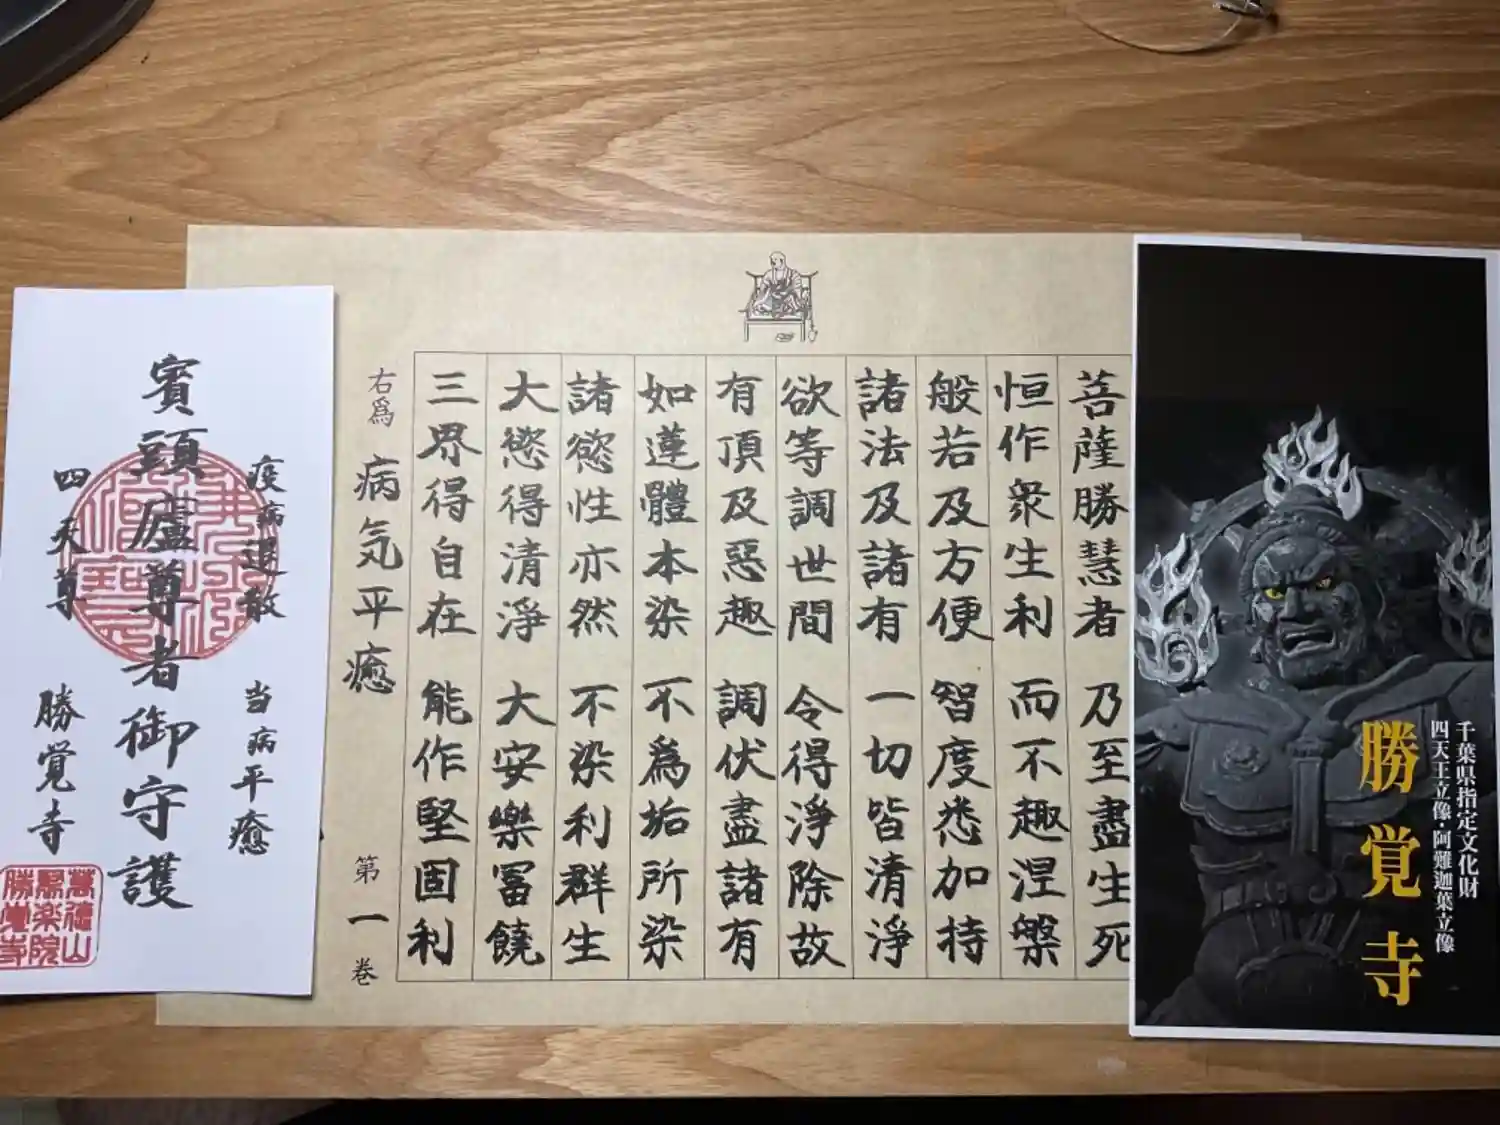 菩薩勝慧者 乃至盡生死
恒作衆生利 而不趣涅槃
般若及方便 智度悉加持
諸法及諸有 一切皆清淨
欲等調世間 令得淨除故
有頂及惡趣 調伏盡諸有
如蓮體本染 不為垢所染
諸慾性亦然 不染利群生
大慾得清淨 大安樂冨饒
三界得自在 能作堅固利
右爲 病気平癒 第一巻
疫病退散 当病平癒
賓頭盧尊者御守護
四天尊 勝覚寺
千葉県指定文化財
四天王立像・阿難迦葉立像
勝覚寺